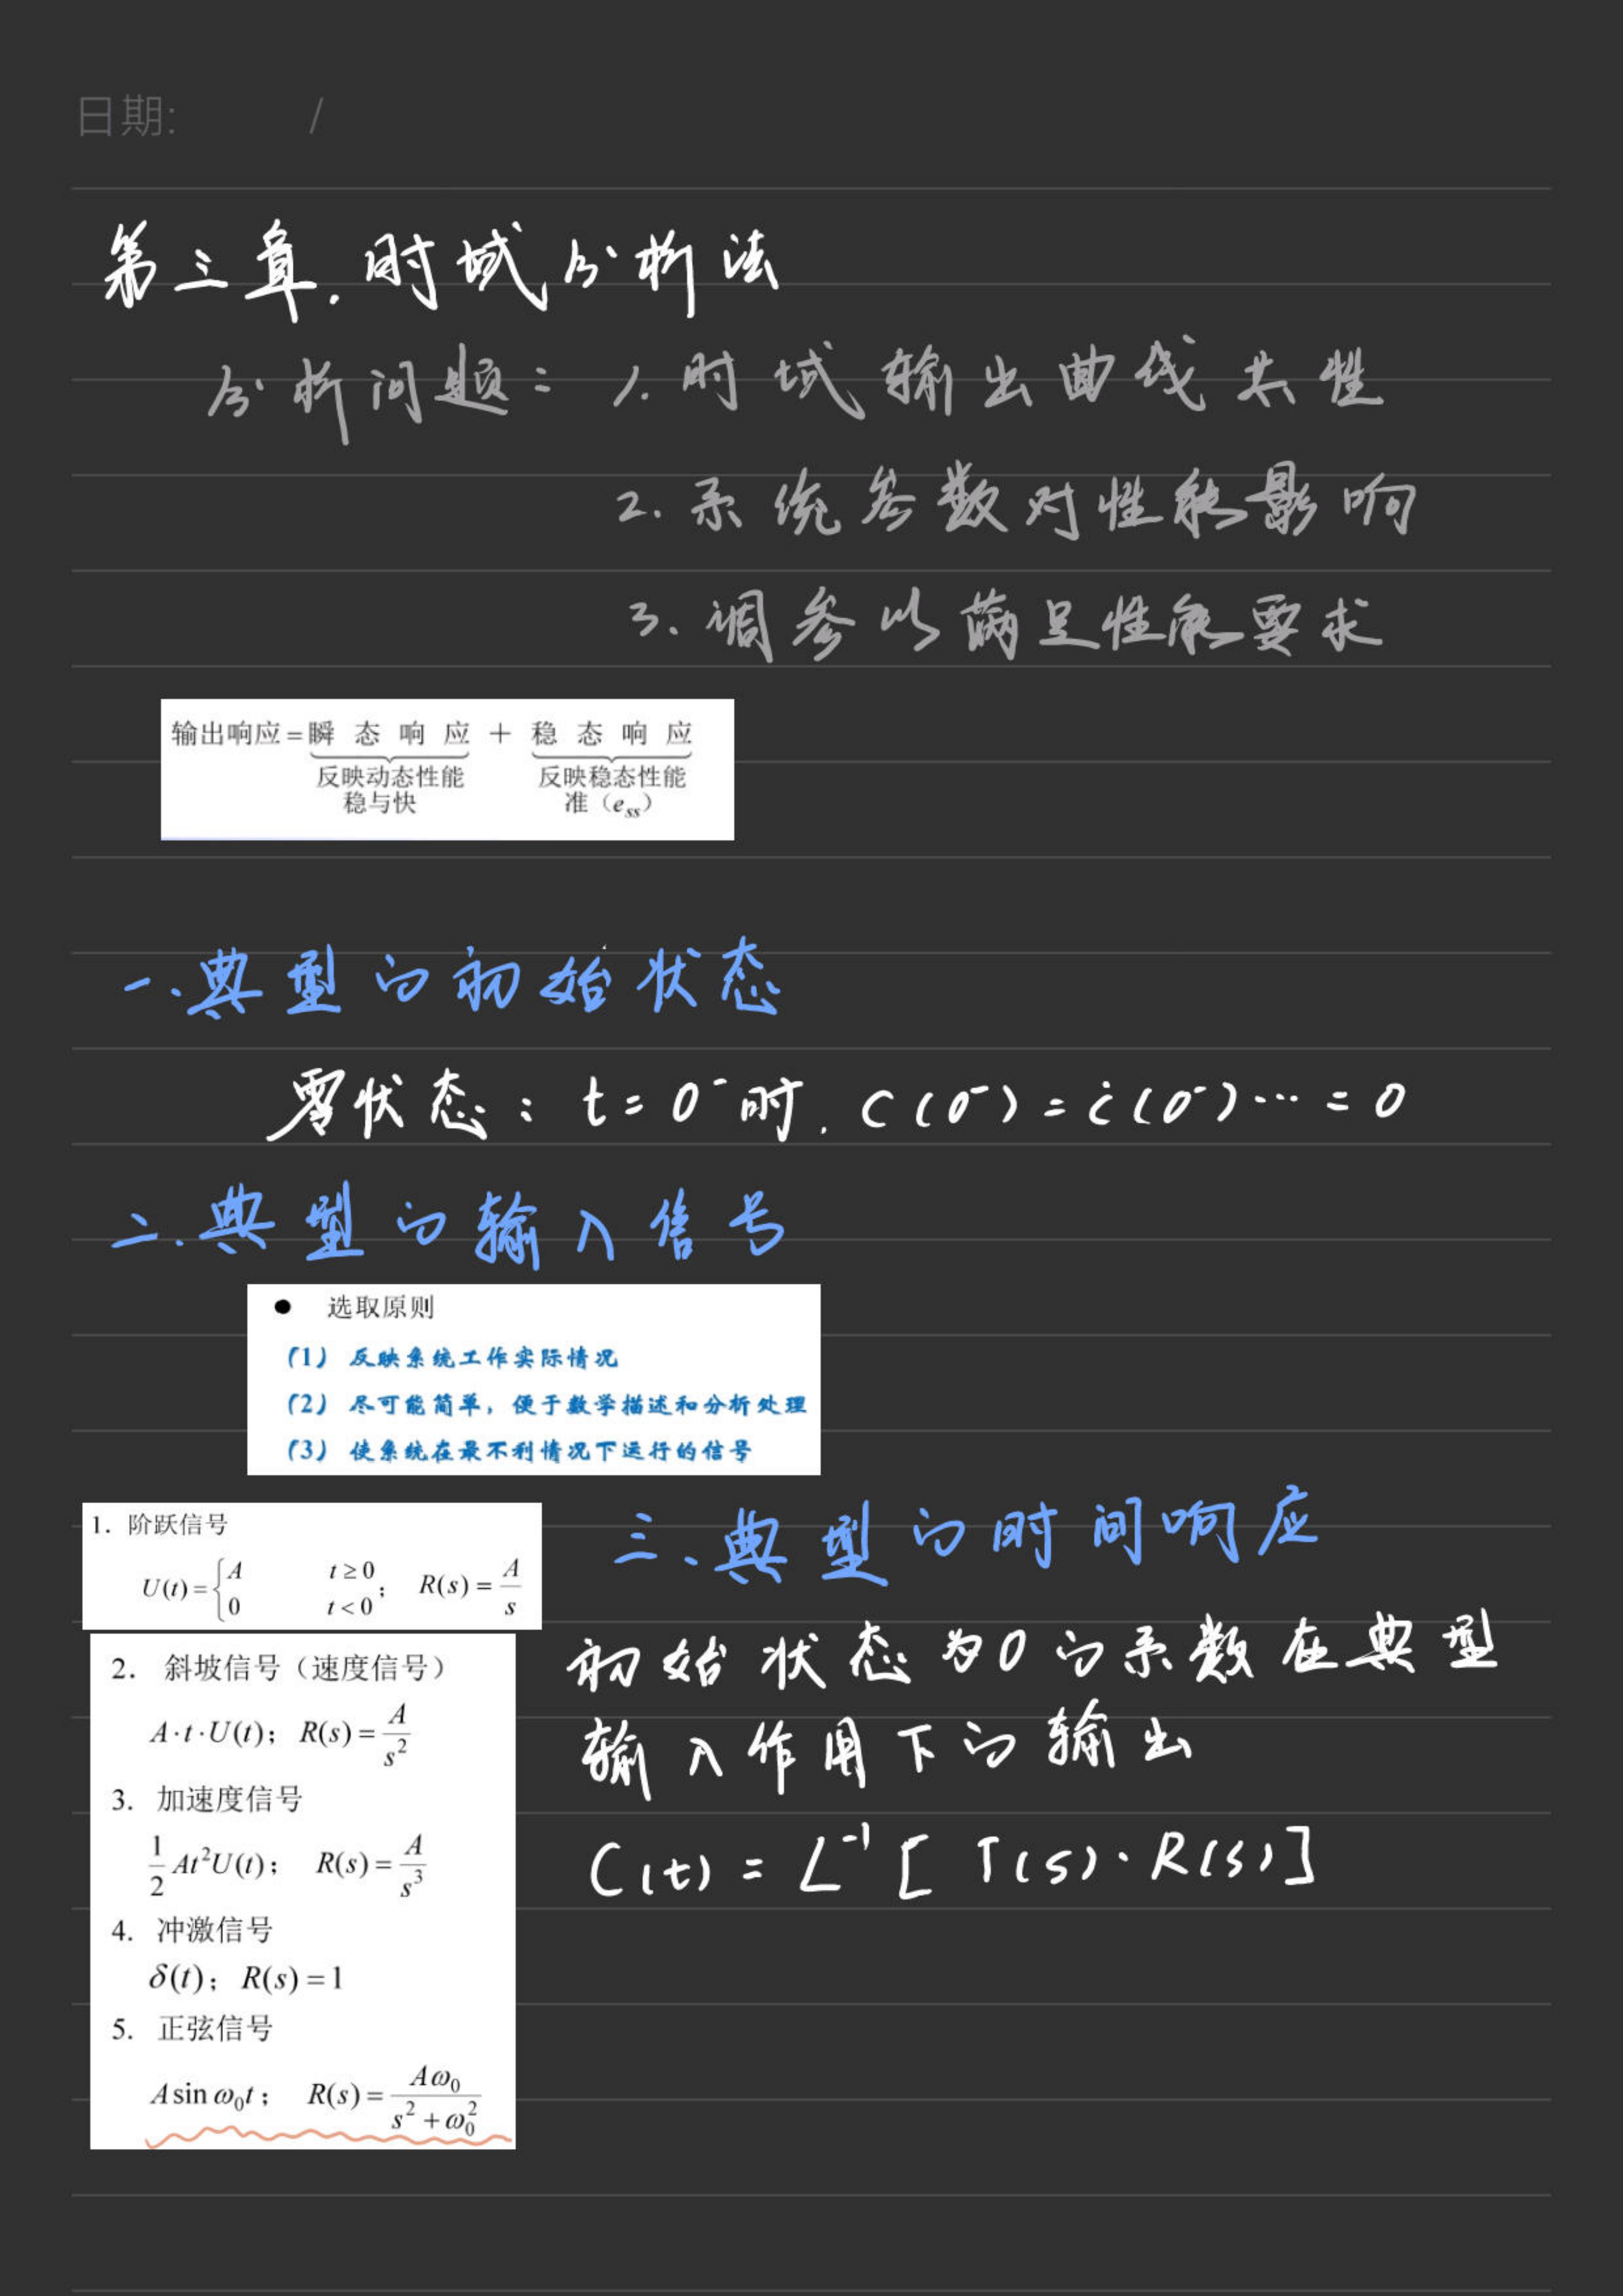 日期: /
第三章. 时域分析法
分析问题: 1. 时域输出曲线共性
2. 系统参数对性能影响
3. 调参以满足性能要求
输出响应=瞬态响应 + 稳态响应
反映动态性能 反映稳态性能
稳与快 准（e_ss）
一.典型的初始状态
零状态: t=0⁻时. C(0⁻)=ċ(0⁻)…=0
二.典型的输入信号
● 选取原则
（1）反映系统工作实际情况
（2）尽可能简单，便于数学描述和分析处理
（3）使系统在最不利情况下运行的信号
1. 阶跃信号
U(t)={A t≥0; 0 t<0; R(s)=A/s
2. 斜坡信号（速度信号）
A·t·U(t); R(s)=A/s²
3. 加速度信号
1/2 At²U(t); R(s)=A/s³
4. 冲激信号
δ(t); R(s)=1
5. 正弦信号
A sin ω₀t; R(s)=Aω₀/(s²+ω₀²)
三、典型的时间响应
初始状态为0的系数在典型
输入作用下的输出
C(t)=L⁻¹[T(s)·R(s)]